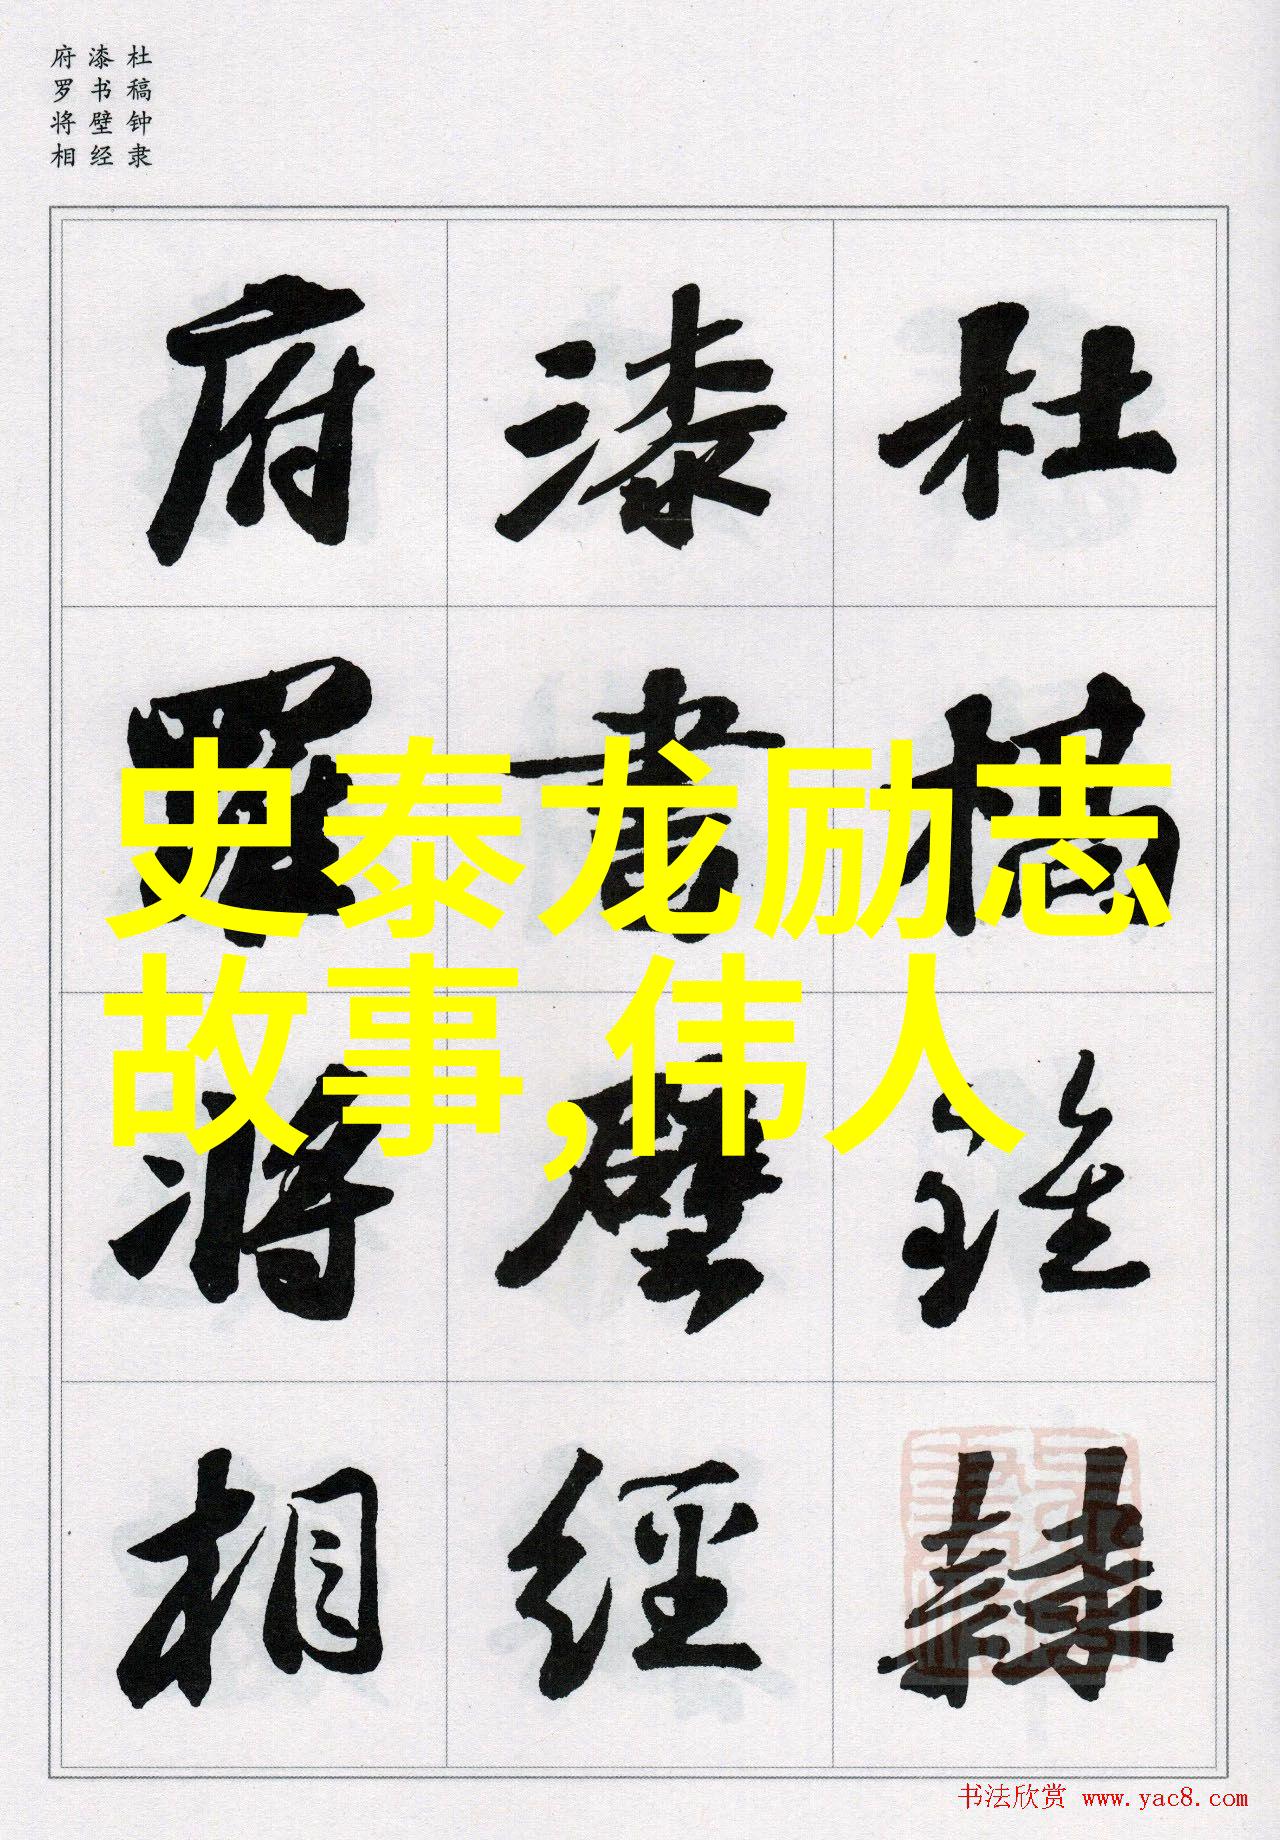 杜稿钟隶
漆书壁经
府罗将相
杜稿鍾隸
漆書壁經
府羅將相
史泰龙励志
故事,伟人
书法欣赏 www.yac8.com